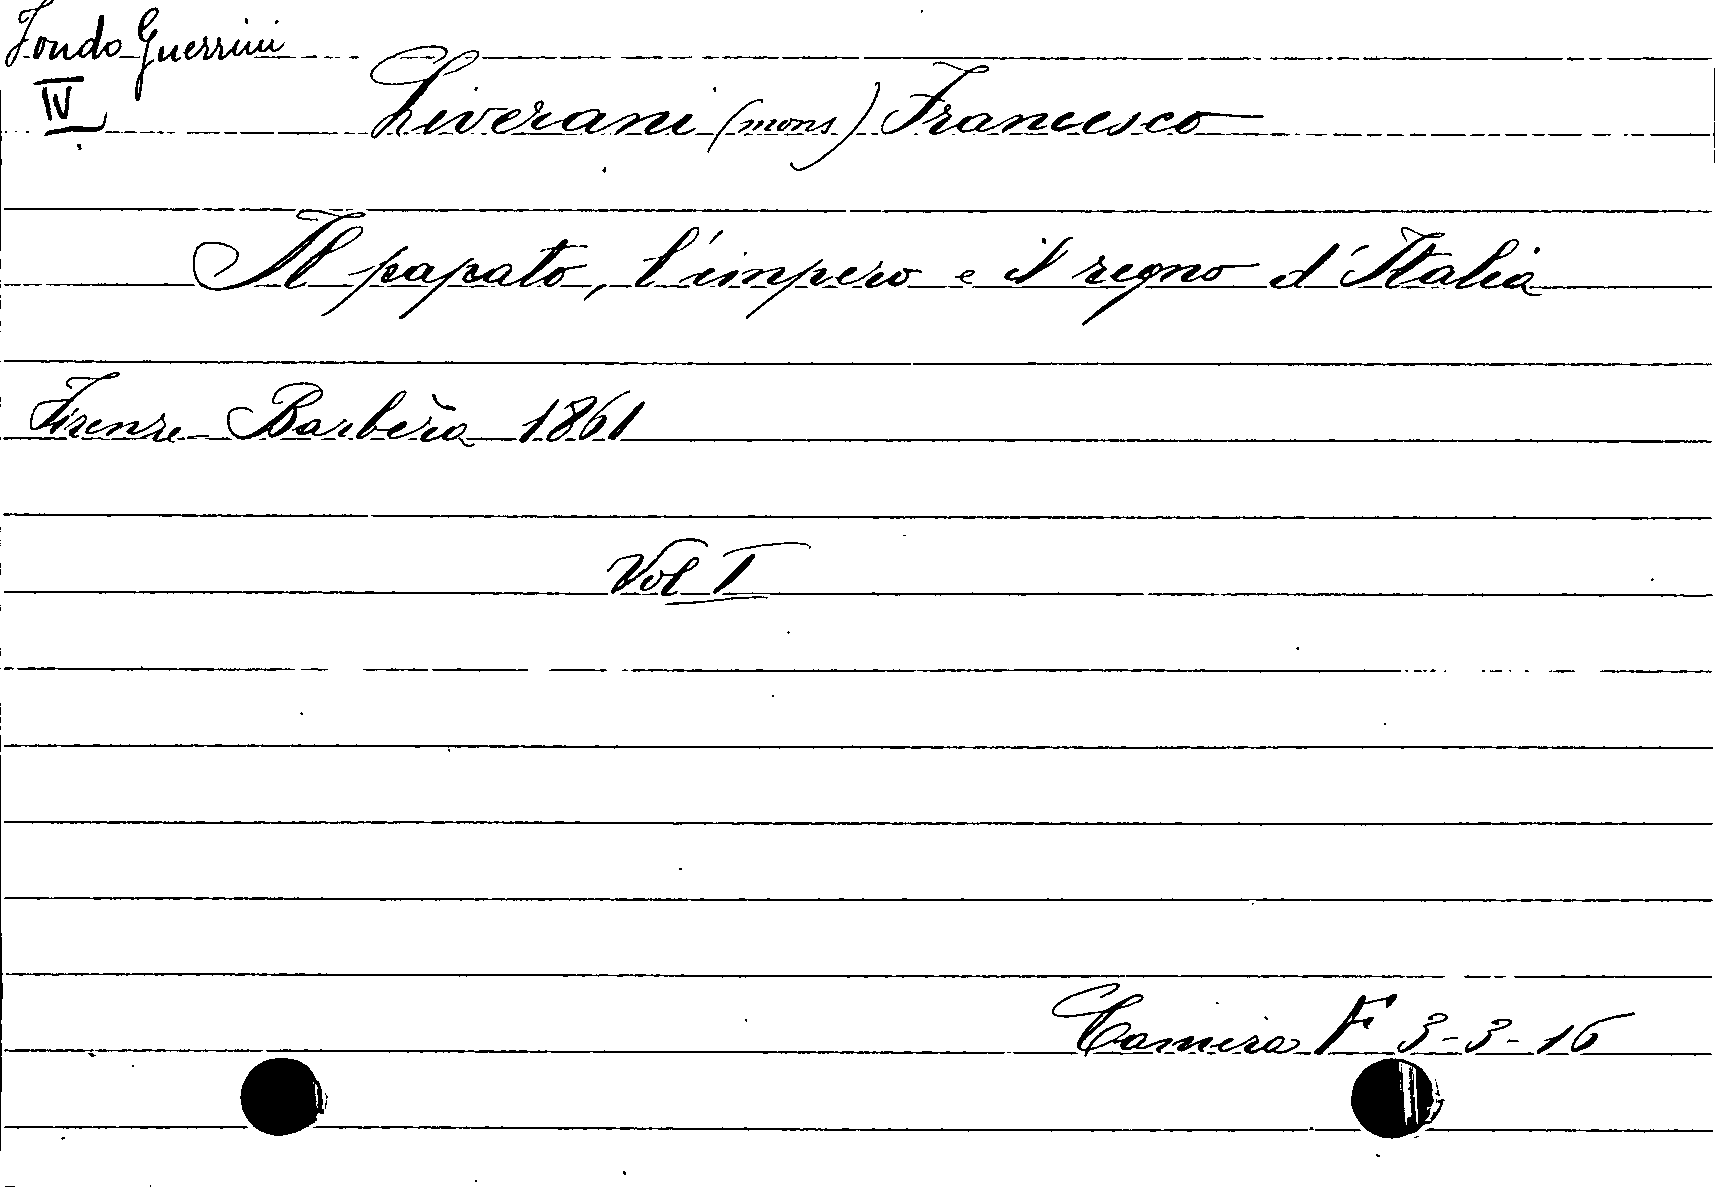 Fondo Guerrini
IV
Liverani (mons) Francesco
Il papato, l'impero e il regno d'Italia
Firenze Barbèra 1861
Vol I
Camera F 3-3-16